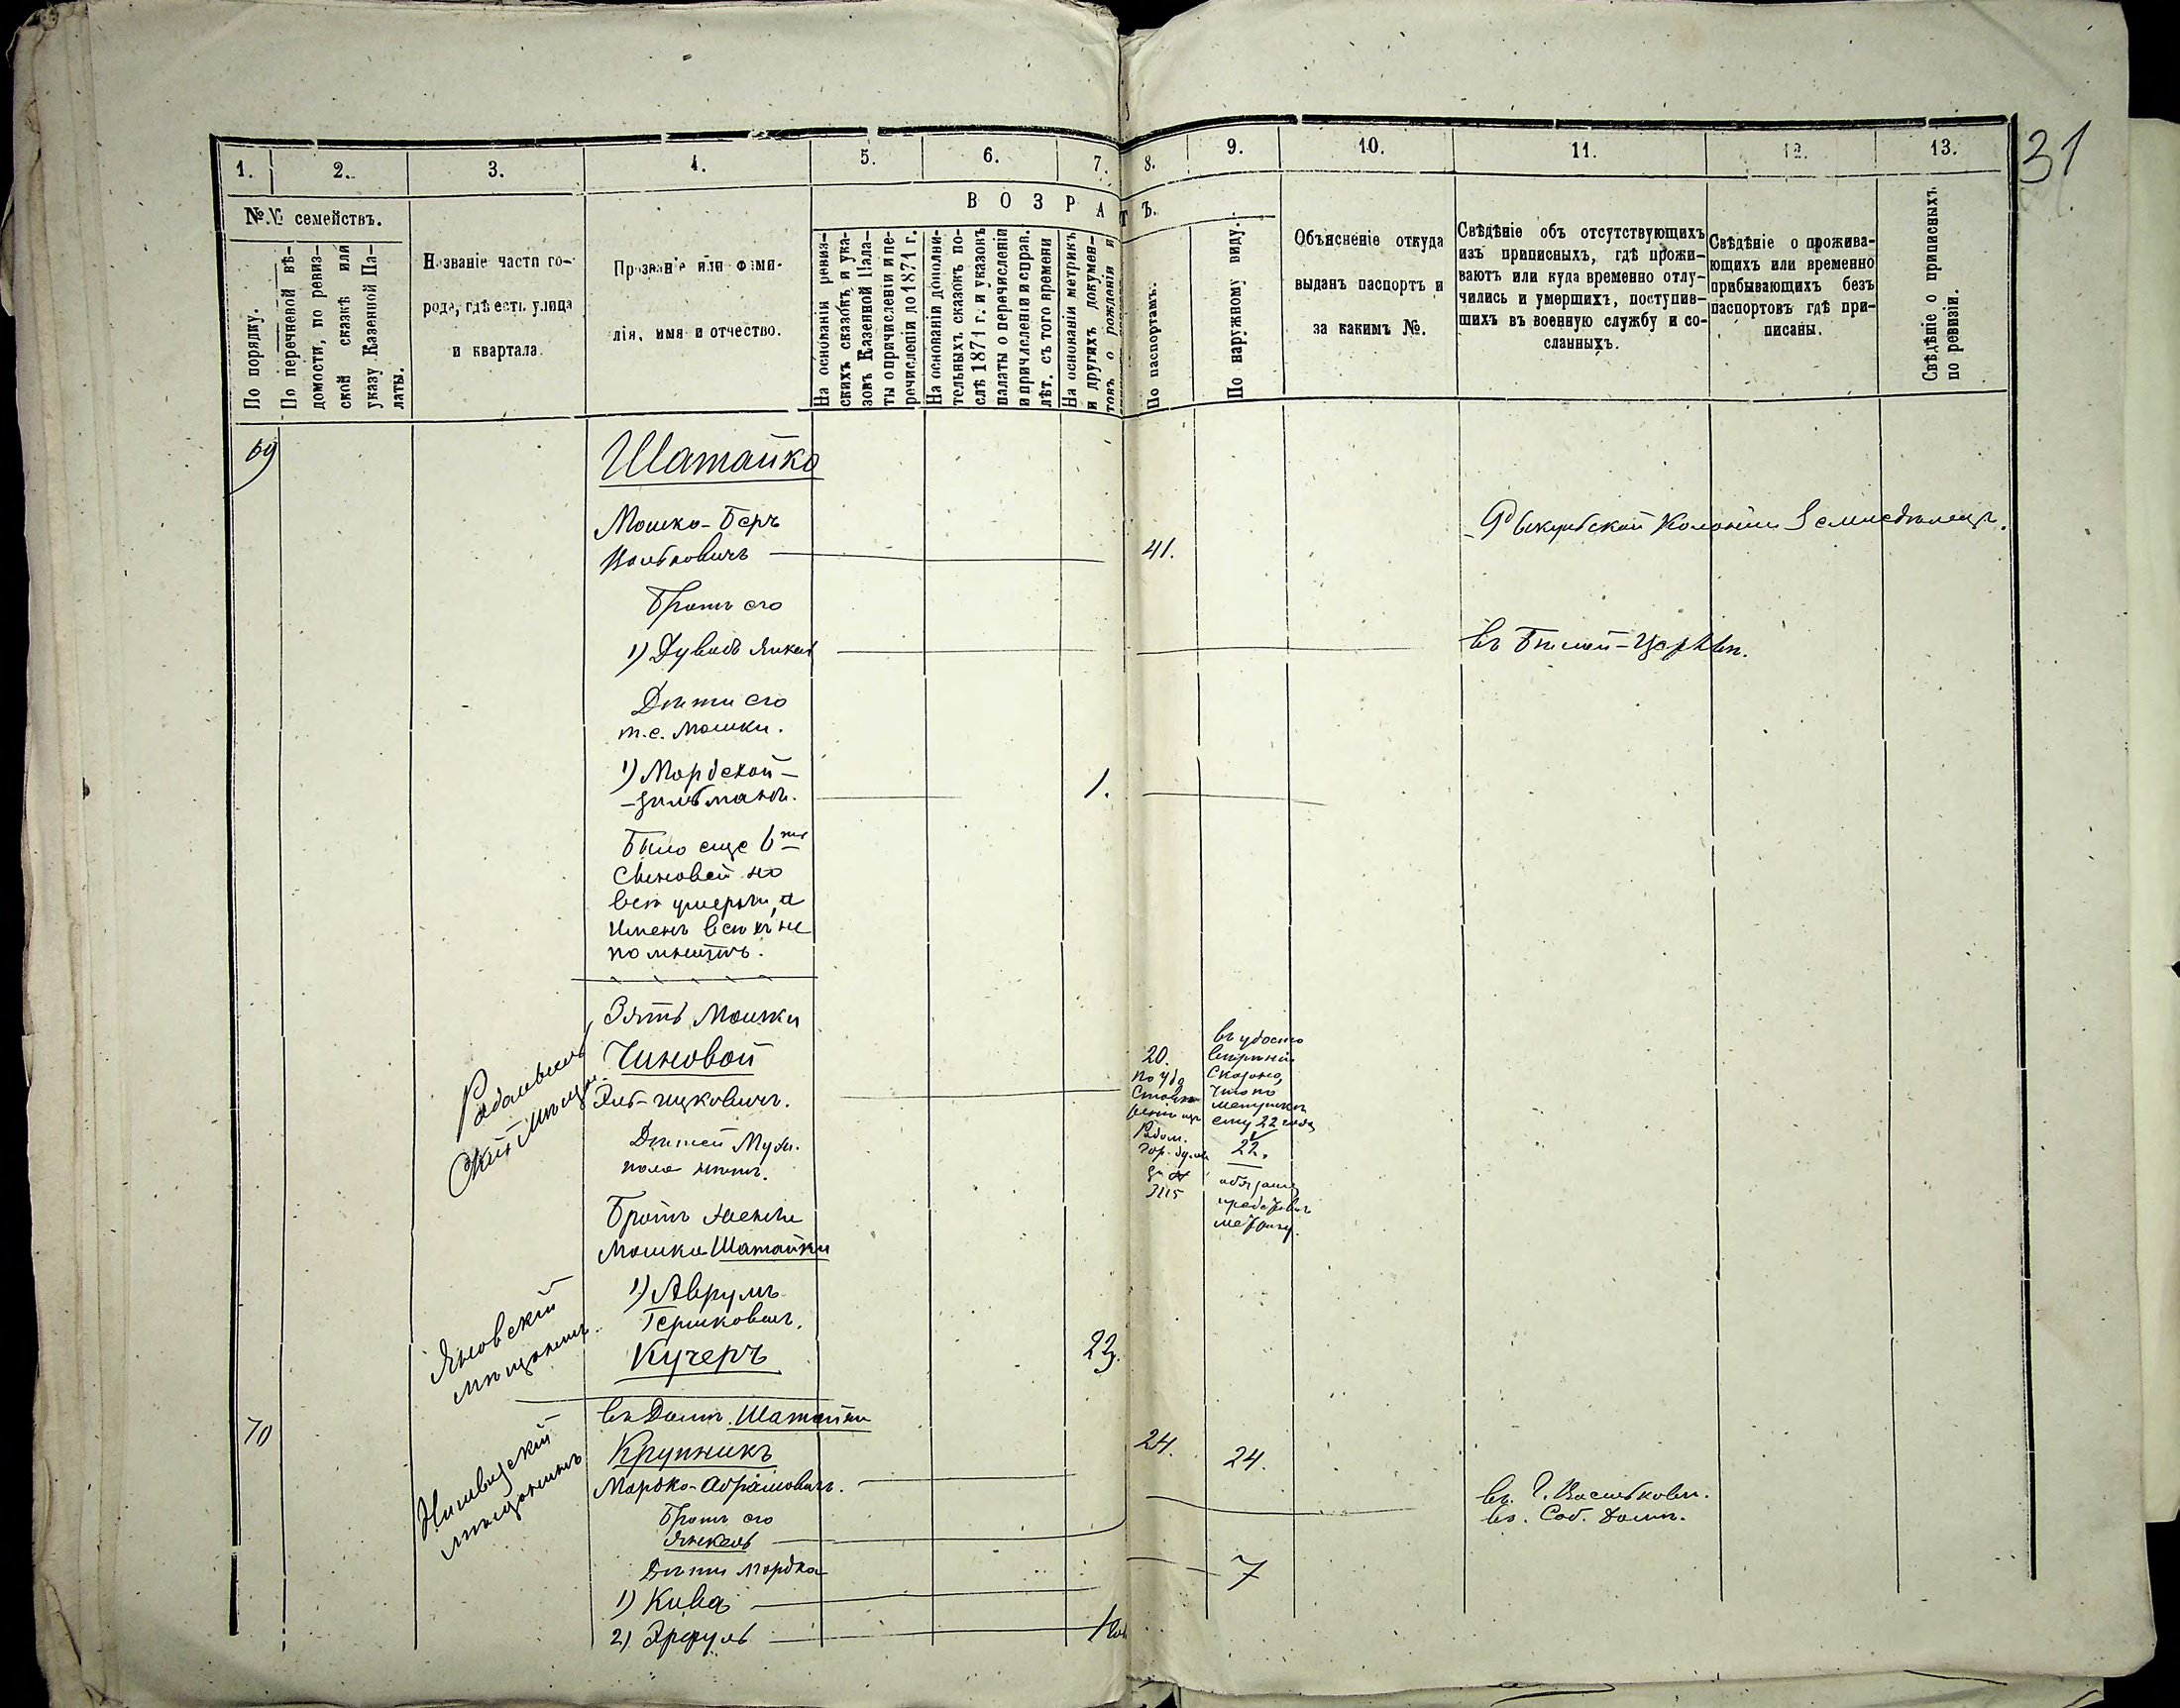 31
1.
2.
3.
4.
5.
6.
7.
8.
9.
10.
11.
12.
13.
№№ семействъ.
По порядку.
По перечневой вѣ-
домости, по ревиз-
ской сказкѣ или
указу Казенной Па-
латы.
Названіе части го-
рода, гдѣ есть улица
и квартала.
Прозваніе или фами-
лія, имя и отчество.
ВОЗРАСТЪ.
На основаніи ревиз-
скихъ сказокъ и ука-
зовъ Казенной Пала-
ты о причисленіи и пе-
речисленіи до 1871 г.
На основаніи дополни-
тельныхъ сказокъ по-
слѣ 1871 г. и указовъ
палаты о перечисленіи
и причисленіи и справ.
лѣт. съ того времени
На основаніи метрикъ
и другихъ докумен-
товъ о рожденіи и
По паспортамъ.
По наружному виду.
Объясненіе откуда
выданъ паспортъ и
за какимъ №.
Свѣдѣніе объ отсутствующихъ
изъ приписныхъ, гдѣ прожи-
ваютъ или куда временно отлу-
чились и умершихъ, поступив-
шихъ въ военную службу и со-
сланныхъ.
Свѣдѣніе о прожива-
ющихъ или временно
прибывающихъ безъ
паспортовъ гдѣ при-
писаны.
Свѣдѣніе о приписныхъ
по ревизіи.
69
Шатайко
Мошко-Беръ
Вольковичъ
41.
Колоніи Земледѣлецъ.
Братъ его
1) Дувидъ Янкел
въ Бѣлой-Церкви.
Дѣти его
т.е. Мошки.
1) Мордской-
-Зильманъ.
1.
Было еще 6ть
Сыновей но
всѣ умерли, а
Именъ всѣхъ не
помнитъ.
Зять Мошки
Чиновой
Эль-Ицковичъ.
Радомысль
скій мѣщан.
20.
по удо
стовѣ
ренію изъ
Радом.
гор. думы
за №
3115
въ удосто
вѣреніи
Сказано,
что по
метрикѣ
ему 22 года
22.
обязанъ
представить
метрику.
Дѣтей Муж.
пола нѣтъ.
Братъ жены
Мошки Шатайки
1) Аврумъ
Гершковичъ.
Кучеръ
Яновскій
мѣщанинъ.
23.
70
въ Домѣ. Шатайки
Крупникъ
Мордко-Абрамовичъ.
мѣщанинъ
24.
24.
Братъ его
Янкель
въ г. Васильковѣ.
въ. Соб. Домѣ.
Дѣти Мордка
1) Кива
7
2) Эрфуль
1